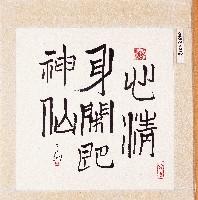 心清
身閑即
神仙